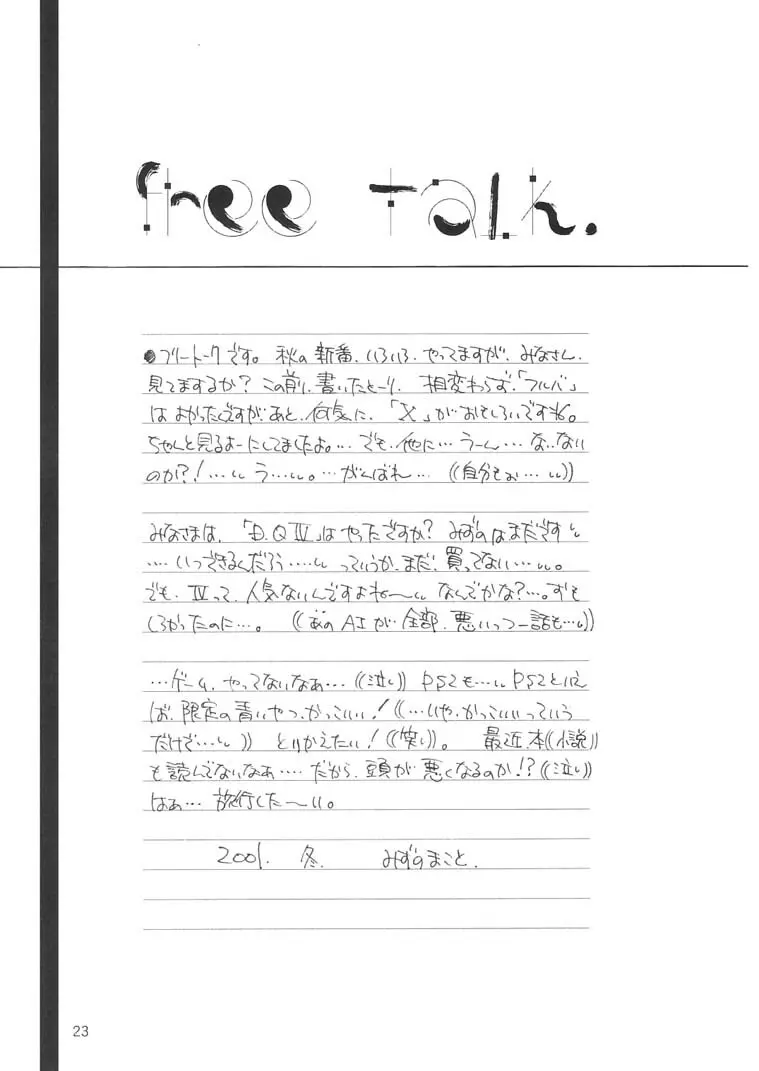 free Talk.
●フリートークです。秋の新番、いろいろ、やってますが、みなさん、
見てまするか？この前に書いたとーり、相変わらず、「フルバ」
はよかったですが、あと、何気に、「X」がおもしろいですね。
ちゃんと見るよーにしてましたよ。… でも、他に… うーん… な、ない
のか？！…いう…い。… がんばれ… （（自分もぉ…い））
みなさまは、「D.Q Ⅳ」はやったですか？ みずのはまだですい
…いつできるんだろう……い っていうか、まだ、買ってない…い。
でも、Ⅳって、人気ないんですよね〜い なんでかな？…。おも
しろかったのに…。 （（あのAIが、全部、悪いっつー話も…い））
…ゲーム、やってないなあ…（（泣い）） PS2も…い PS2といえ
ば、限定の青いやつ、かっこいい！（（…いや、かっこいいっていう
だけど…い）） とりかえたい！（（笑い））。 最近、本（（小説））
も読んでないなぁ…。だから、頭が悪くなるのか！？（（泣い））
はぁ… 旅行した〜い。
2001. 冬. みずのまこと.
23